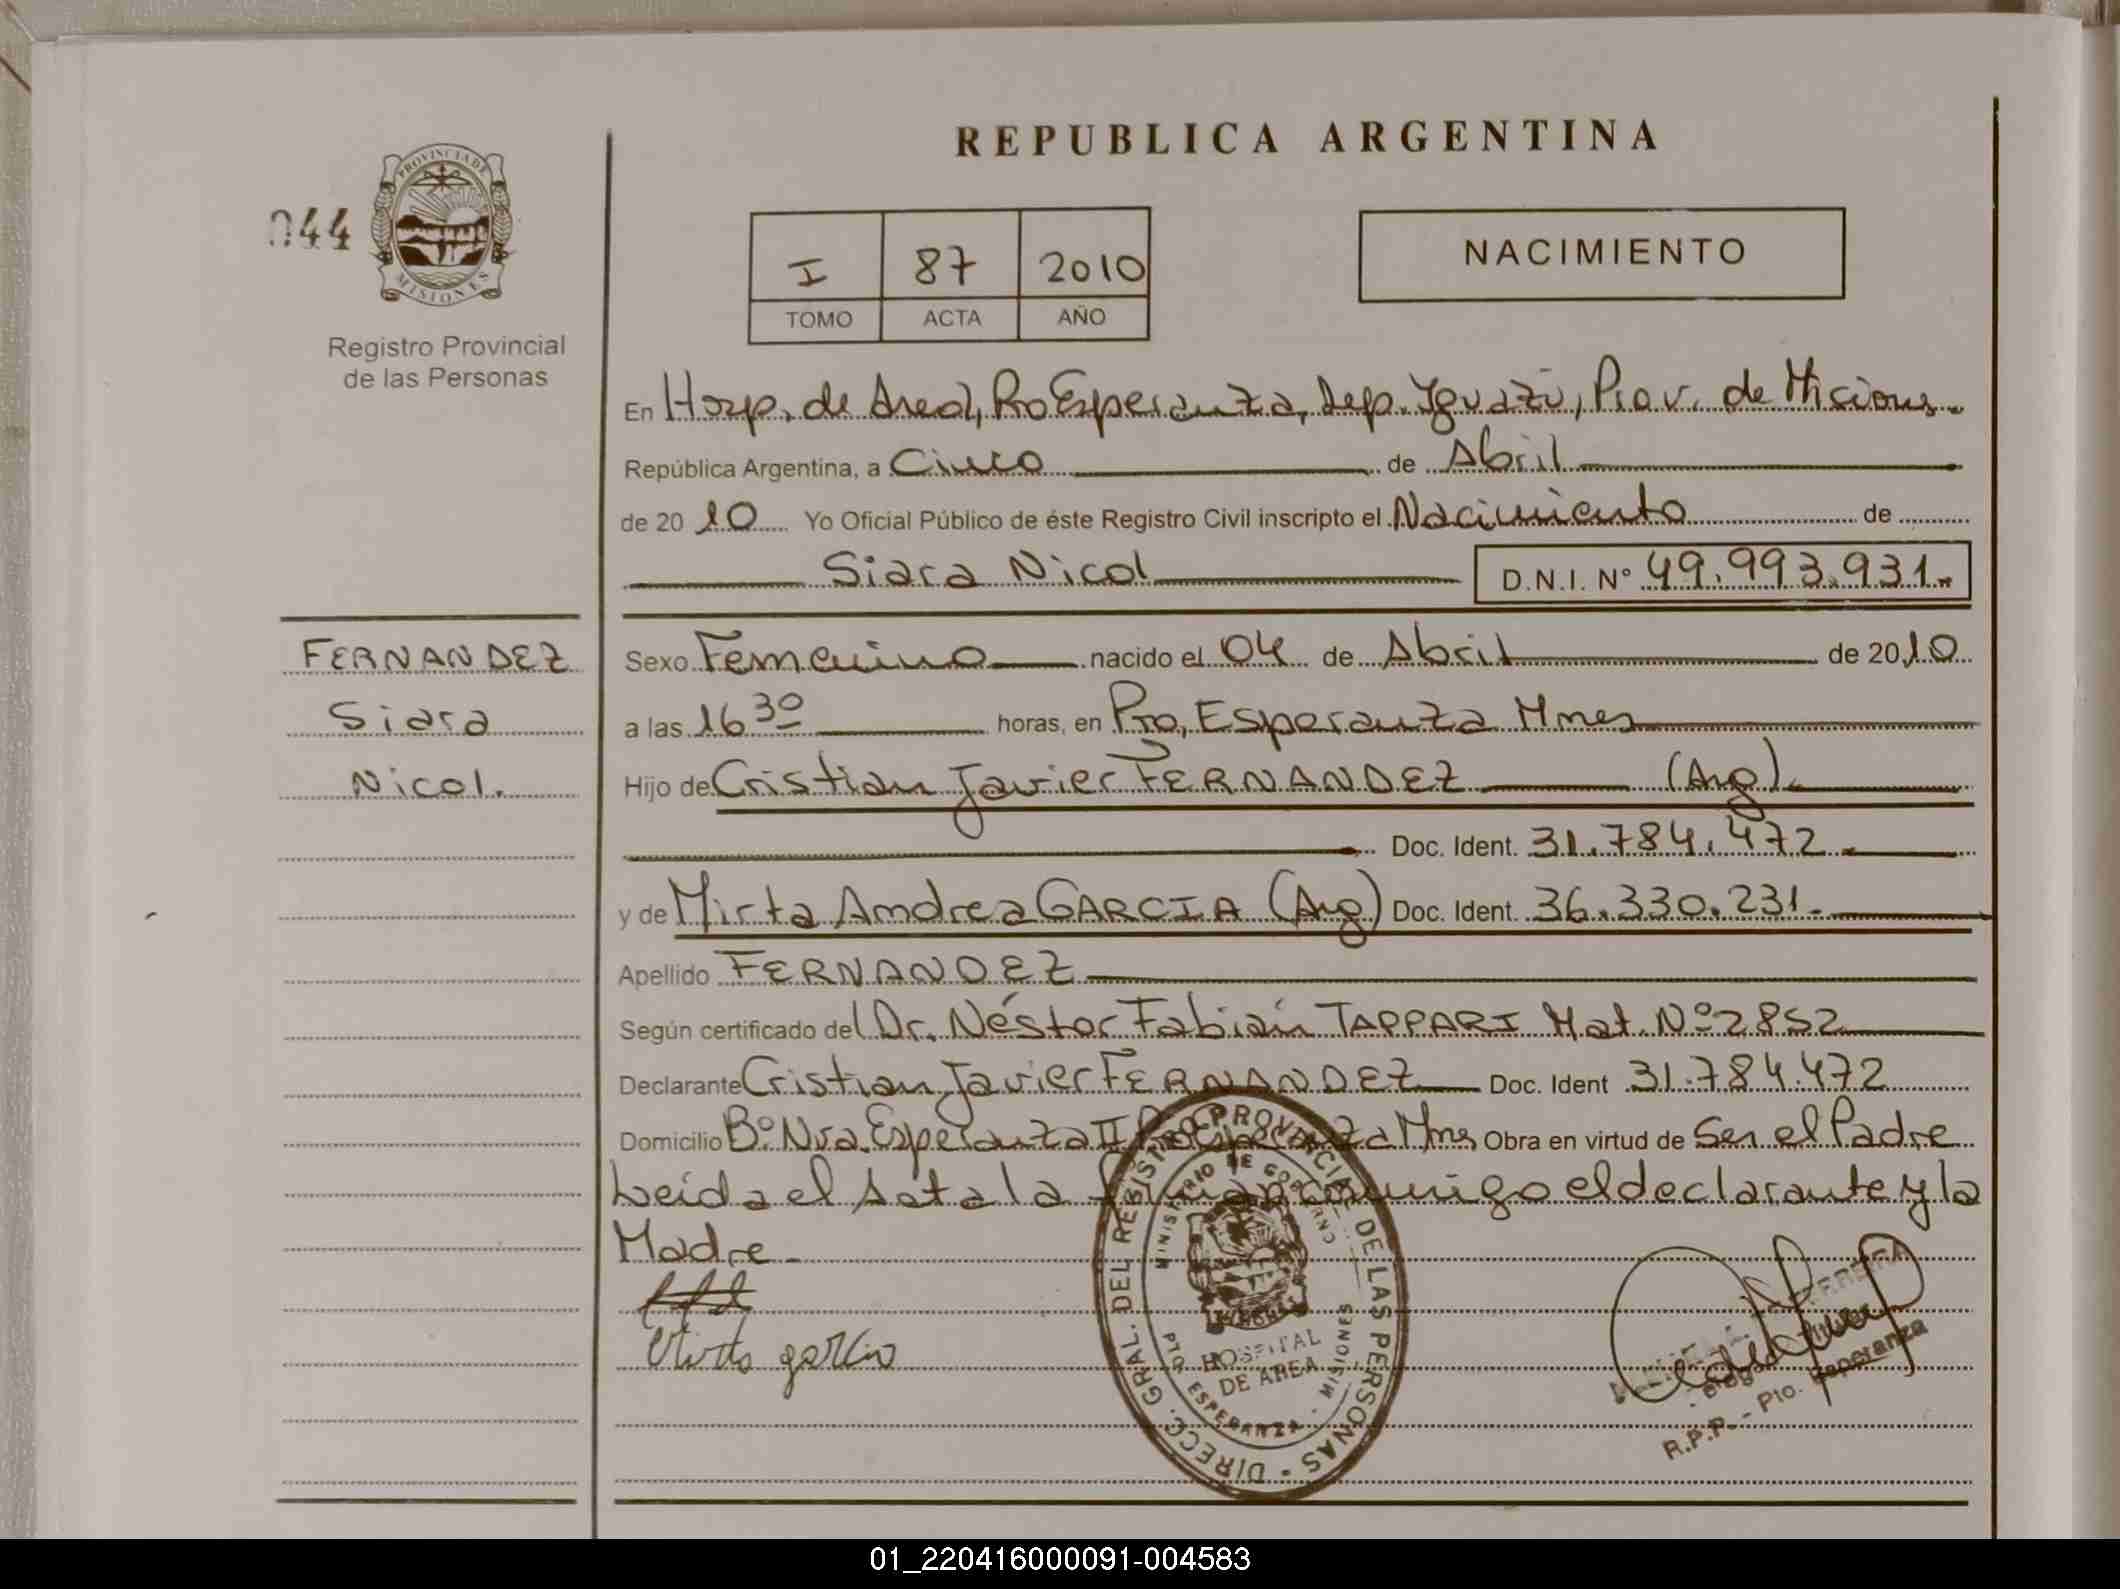 REPUBLICA ARGENTINA
044
PROVINCIA DE MISIONES
Registro Provincial
de las Personas
I 87 2010
TOMO ACTA AÑO
NACIMIENTO
En Hosp. de Area, Pto Esperanza, Dep. Iguazú, Prov. de Misiones.
República Argentina, a Cinco de Abril
de 2010 Yo Oficial Público de éste Registro Civil inscripto el Nacimiento de
Siara Nicol D.N.I. Nº 49.993.931.-
FERNANDEZ
Siara
Nicol.
Sexo Femenino nacido el 04 de Abril de 2010
a las 16 30 horas, en Pto, Esperanza Mnes
Hijo de Cristian Javier FERNANDEZ (Arg).
Doc. Ident. 31.784.472.
y de Mirta Andrea GARCIA (Arg) Doc. Ident. 36.330.231.
Apellido FERNANDEZ
Según certificado del Dr. Néstor Fabián TAPPARI Mat. Nº 2852
Declarante Cristian Javier FERNANDEZ Doc. Ident 31.784.472
Domicilio Bº Nva. Esperanza II Pto Esperanza Mnes Obra en virtud de Ser el Padre
Leida el Acta la firman conmigo el declarante y la
Madre.
Mirta garcia
DIRECC. GRAL. DEL REGISTRO PROVINCIAL DE LAS PERSONAS
MINISTERIO DE GOBIERNO
HOSPITAL
DE AREA
PTO ESPERANZA - MISIONES
R.P.P. - Pto. Esperanza
01_220416000091-004583